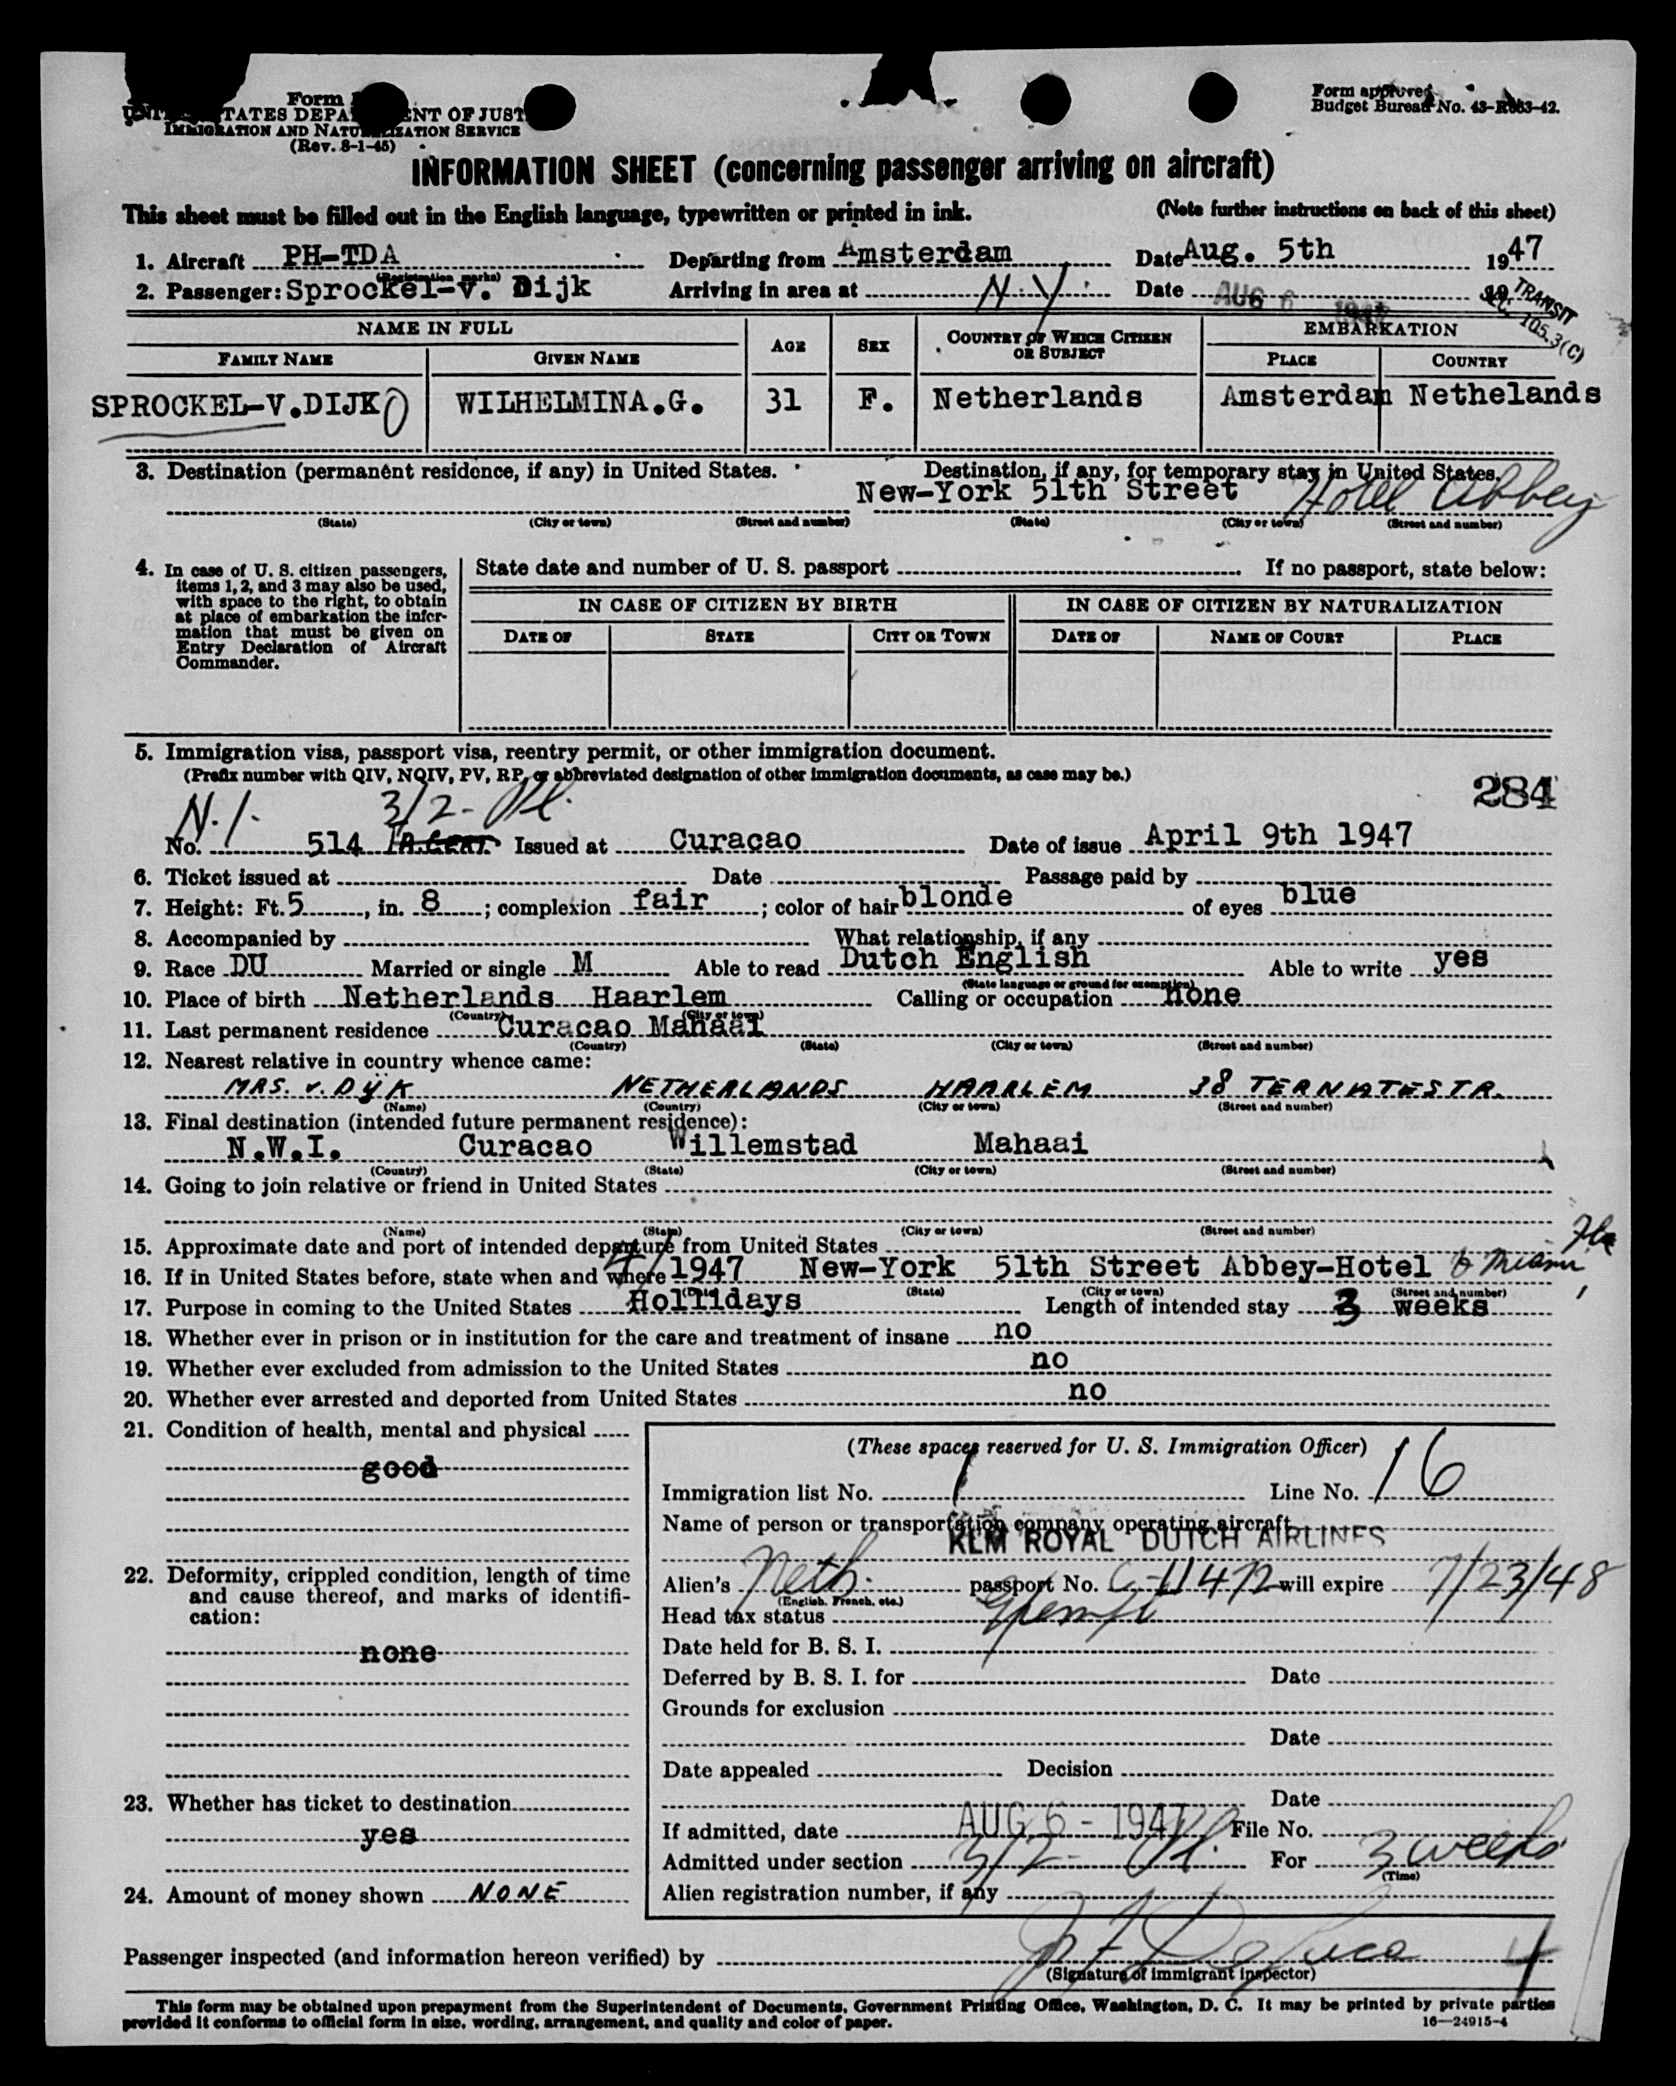 Form
UNITED STATES DEPARTMENT OF JUSTICE
IMMIGRATION AND NATURALIZATION SERVICE
(Rev. 8-1-45)
Form approved
Budget Bureau No. 43-R083-42.
INFORMATION SHEET (concerning passenger arriving on aircraft)
This sheet must be filled out in the English language, typewritten or printed in ink. (Note further instructions on back of this sheet)
1. Aircraft PH-TDA Departing from Amsterdam Date Aug. 5th 1947
(Registration marks)
2. Passenger: Sprockel-v. Dijk Arriving in area at N.Y. Date AUG 6 1947 19
TRANSIT
SEC. 105.3(C)
NAME IN FULL AGE SEX COUNTRY OF WHICH CITIZEN OR SUBJECT EMBARKATION
FAMILY NAME GIVEN NAME PLACE COUNTRY
SPROCKEL-V.DIJK WILHELMINA.G. 31 F. Netherlands Amsterdam Nethelands
3. Destination (permanent residence, if any) in United States. Destination, if any, for temporary stay in United States.
New-York 51th Street Hotel Abbey
(State) (City or town) (Street and number) (State) (City or town) (Street and number)
4. In case of U. S. citizen passengers, items 1, 2, and 3 may also be used, with space to the right, to obtain at place of embarkation the information that must be given on Entry Declaration of Aircraft Commander.
State date and number of U. S. passport If no passport, state below:
IN CASE OF CITIZEN BY BIRTH IN CASE OF CITIZEN BY NATURALIZATION
DATE OF STATE CITY OR TOWN DATE OF NAME OF COURT PLACE
5. Immigration visa, passport visa, reentry permit, or other immigration document.
(Prefix number with QIV, NQIV, PV, RP, or abbreviated designation of other immigration documents, as case may be.)
284
N.I. 3/2-Pl.
No. 514 Issued at Curaçao Date of issue April 9th 1947
6. Ticket issued at Date Passage paid by
7. Height: Ft. 5, in. 8; complexion fair; color of hair blonde of eyes blue
8. Accompanied by What relationship, if any
9. Race DU Married or single M Able to read Dutch English Able to write yes
(State language or ground for exemption)
10. Place of birth Netherlands Haarlem Calling or occupation none
(Country) (City or town)
11. Last permanent residence Curaçao Mahaai
(Country) (State) (City or town) (Street and number)
12. Nearest relative in country whence came:
MRS. v. DYK NETHERLANDS HAARLEM 38 TERNATESTR.
(Name) (Country) (City or town) (Street and number)
13. Final destination (intended future permanent residence):
N.W.I. Curacao Willemstad Mahaai
(Country) (State) (City or town) (Street and number)
14. Going to join relative or friend in United States
(Name) (State) (City or town) (Street and number)
15. Approximate date and port of intended departure from United States
Fla
16. If in United States before, state when and where 4/1947 New-York 51th Street Abbey-Hotel to Miami
(Date) (State) (City or town) (Street and number)
17. Purpose in coming to the United States Hollidays Length of intended stay 3 weeks
18. Whether ever in prison or in institution for the care and treatment of insane no
19. Whether ever excluded from admission to the United States no
20. Whether ever arrested and deported from United States no
21. Condition of health, mental and physical
good
22. Deformity, crippled condition, length of time and cause thereof, and marks of identification:
none
23. Whether has ticket to destination
yes
24. Amount of money shown NONE
(These spaces reserved for U. S. Immigration Officer)
Immigration list No. 1 Line No. 16
Name of person or transportation company operating aircraft
KLM ROYAL DUTCH AIRLINES
Alien's Neth. passport No. C-11472 will expire 7/23/48
(English, French, etc.)
Head tax status Exempt
Date held for B. S. I.
Deferred by B. S. I. for Date
Grounds for exclusion
Date
Date appealed Decision
Date
If admitted, date AUG 6 - 1947 File No.
Admitted under section 3/2- Pl. For 3 weeks
(Time)
Alien registration number, if any
Passenger inspected (and information hereon verified) by
(Signature of immigrant inspector)
This form may be obtained upon prepayment from the Superintendent of Documents, Government Printing Office, Washington, D. C. It may be printed by private parties
provided it conforms to official form in size, wording, arrangement, and quality and color of paper. 16—24915-4